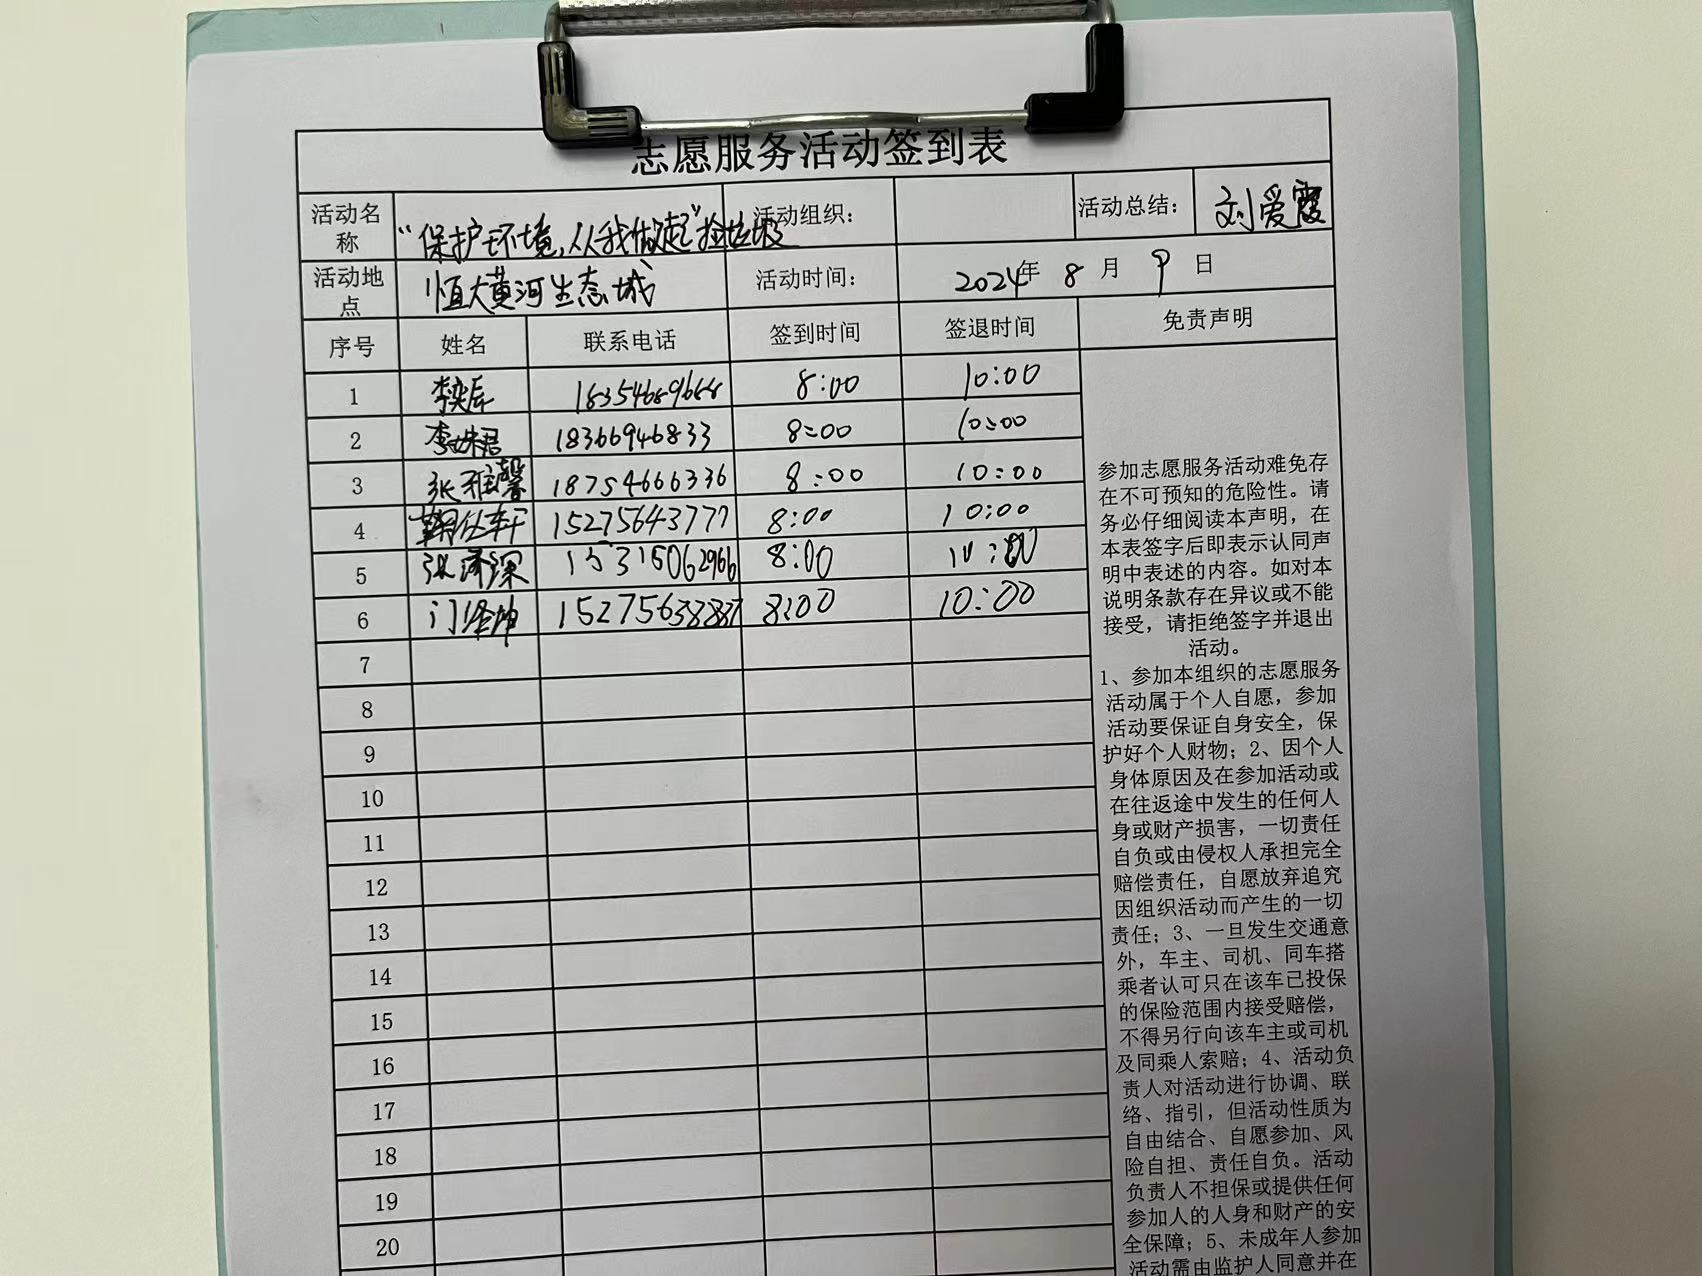 志愿服务活动签到表
活动名称 “保护环境,从我做起”捡垃圾 活动组织: 活动总结: 刘爱霞
活动地点 恒大黄河生态城 活动时间: 2024年 8 月 9 日
序号 姓名 联系电话 签到时间 签退时间 免责声明
1 李奕辰 18354689668 8:00 10:00
2 李姝君 18366946833 8:00 10:00
3 张雅馨 18754666336 8:00 10:00
4 15275643777 8:00 10:00
5 15315062966 8:00 10:00
6 15275638837 8:00 10:00
7
8
9
10
11
12
13
14
15
16
17
18
19
20
参加志愿服务活动难免存
在不可预知的危险性。请
务必仔细阅读本声明,在
本表签字后即表示认同声
明中表述的内容。如对本
说明条款存在异议或不能
接受,请拒绝签字并退出
活动。
1、参加本组织的志愿服务
活动属于个人自愿,参加
活动要保证自身安全,保
护好个人财物;2、因个人
身体原因及在参加活动或
在往返途中发生的任何人
身或财产损害,一切责任
自负或由侵权人承担完全
赔偿责任,自愿放弃追究
因组织活动而产生的一切
责任;3、一旦发生交通意
外,车主、司机、同车搭
乘者认可只在该车已投保
的保险范围内接受赔偿,
不得另行向该车主或司机
及同乘人索赔;4、活动负
责人对活动进行协调、联
络、指引,但活动性质为
自由结合、自愿参加、风
险自担、责任自负。活动
负责人不担保或提供任何
参加人的人身和财产的安
全保障;5、未成年人参加
活动需由监护人同意并在